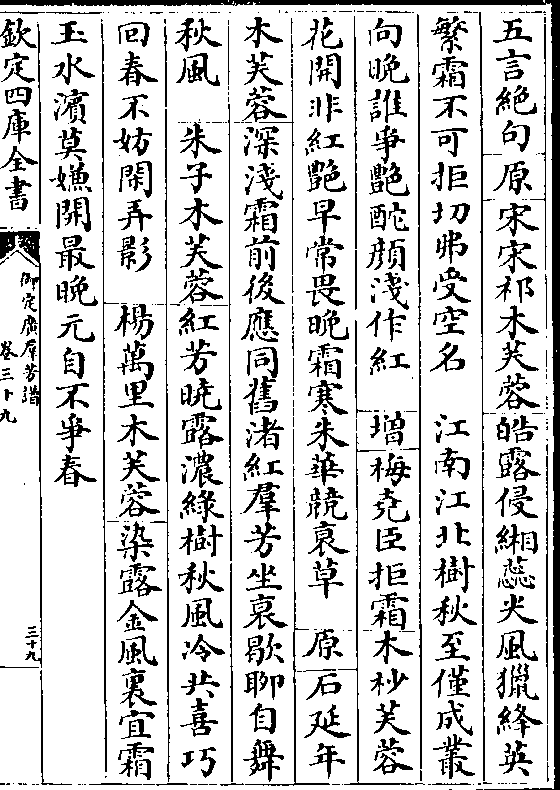 五言絕句 原 宋宋祁木芙蓉皓露侵緗蕊尖風獵絳英
繁霜不可拒切弗受空名 江南江北樹秋至僅成叢
向晚誰爭艷酡顔淺作紅 增 梅堯臣拒霜木杪芙蓉
花開非紅艷早常畏晚霜寒朱華競衰草 原 石延年
木芙蓉深淺霜前後應同舊渚紅羣芳坐衰歇聊自舞
秋風 朱子木芙蓉紅芳曉露濃綠樹秋風冷共喜巧
回春不妨閑弄影 楊萬里木芙蓉染露金風裏宜霜
玉水濱莫嫌開最晚元自不爭春
欽定四庫全書
御定廣羣芳譜
卷三十九
三十九